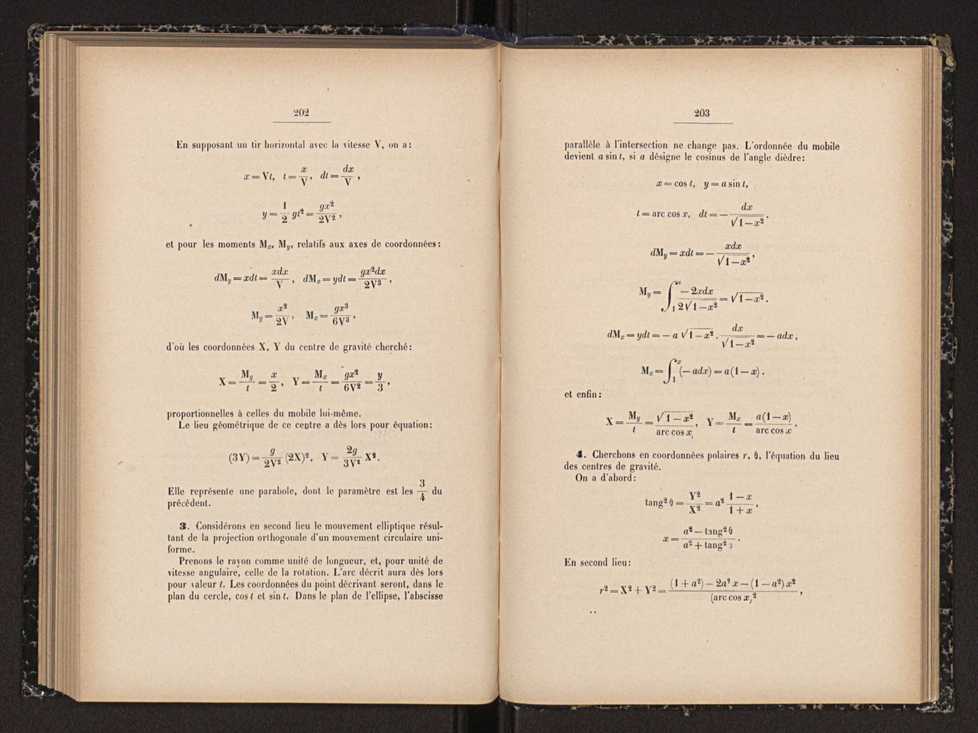 202
En supposant un tir horizontal avec la vitesse V, on a:
x = Vt, t = x/V, dt = dx/V,
y = 1/2 gt² = gx²/2V²,
et pour les moments Mₓ, M_y, relatifs aux axes de coordonnées:
dM_y = xdt = xdx/V, dMₓ = ydt = gx²dx/2V³,
M_y = x²/2V, Mₓ = gx³/6V³,
d'où les coordonnées X, Y du centre de gravité cherché:
X = M_y/t = x/2, Y = Mₓ/t = gx²/6V² = y/3,
proportionnelles à celles du mobile lui-même.
Le lieu géométrique de ce centre a dès lors pour équation:
(3Y) = g/2V² (2X)², Y = 2g/3V² X².
Elle représente une parabole, dont le paramètre est les 3/4 du
précédent.
3. Considérons en second lieu le mouvement elliptique résul-
tant de la projection orthogonale d'un mouvement circulaire uni-
forme.
Prenons le rayon comme unité de longueur, et, pour unité de
vitesse angulaire, celle de la rotation. L'arc décrit aura dès lors
pour valeur t. Les coordonnées du point décrivant seront, dans le
plan du cercle, cos t et sin t. Dans le plan de l'ellipse, l'abscisse
203
parallèle à l'intersection ne change pas. L'ordonnée du mobile
devient a sin t, si a désigne le cosinus de l'angle dièdre:
x = cos t, y = a sin t,
t = arc cos x, dt = − dx/√(1−x²).
dM_y = xdt = − xdx/√(1−x²),
M_y = ∫₁ˣ −2xdx/2√(1−x²) = √(1−x²).
dMₓ = ydt = − a √(1−x²) . dx/√(1−x²) = − adx,
Mₓ = ∫₁ˣ (−adx) = a(1−x).
et enfin:
X = M_y/t = √(1−x²)/arc cos x, Y = Mₓ/t = a(1−x)/arc cos x.
4. Cherchons en coordonnées polaires r, θ, l'équation du lieu
des centres de gravité.
On a d'abord:
tang² θ = Y²/X² = a² (1−x)/(1+x),
x = (a² − tang² θ)/(a² + tang² θ).
En second lieu:
r² = X² + Y² = ((1+a²) − 2a² x − (1−a²) x²)/(arc cos x)²,